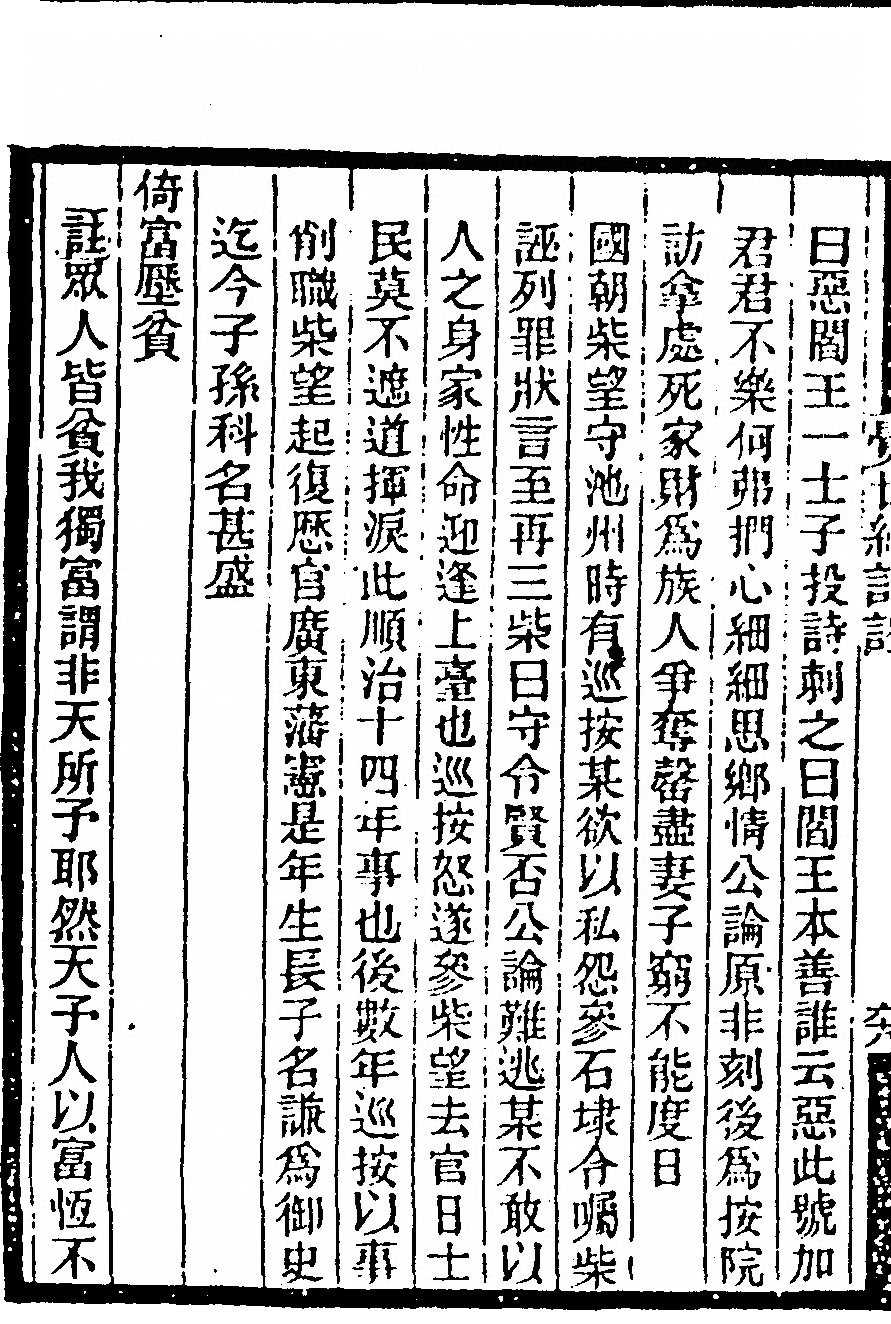 曰惡閻王一士子投詩刺之曰閻王本善誰云惡此號加
君君不樂何弗捫心細細思鄉情公論原非刻後爲按院
訪拿處死家財爲族人爭奪罄盡妻子窮不能度日
國朝柴望守池州時有巡按某欲以私怨參石埭令囑柴
誣列罪狀言至再三柴曰守令賢否公論難逃某不敢以
人之身家性命迎逢上臺也巡按怒遂參柴望去官日士
民莫不遮道揮淚此順治十四年事也後數年巡按以事
削職柴望起復歴官廣東藩憲是年生長子名謙爲御史
迄今子孫科名甚盛
倚富壓貧
註眾人皆貧我獨富謂非天所予耶然天予人以富恆不